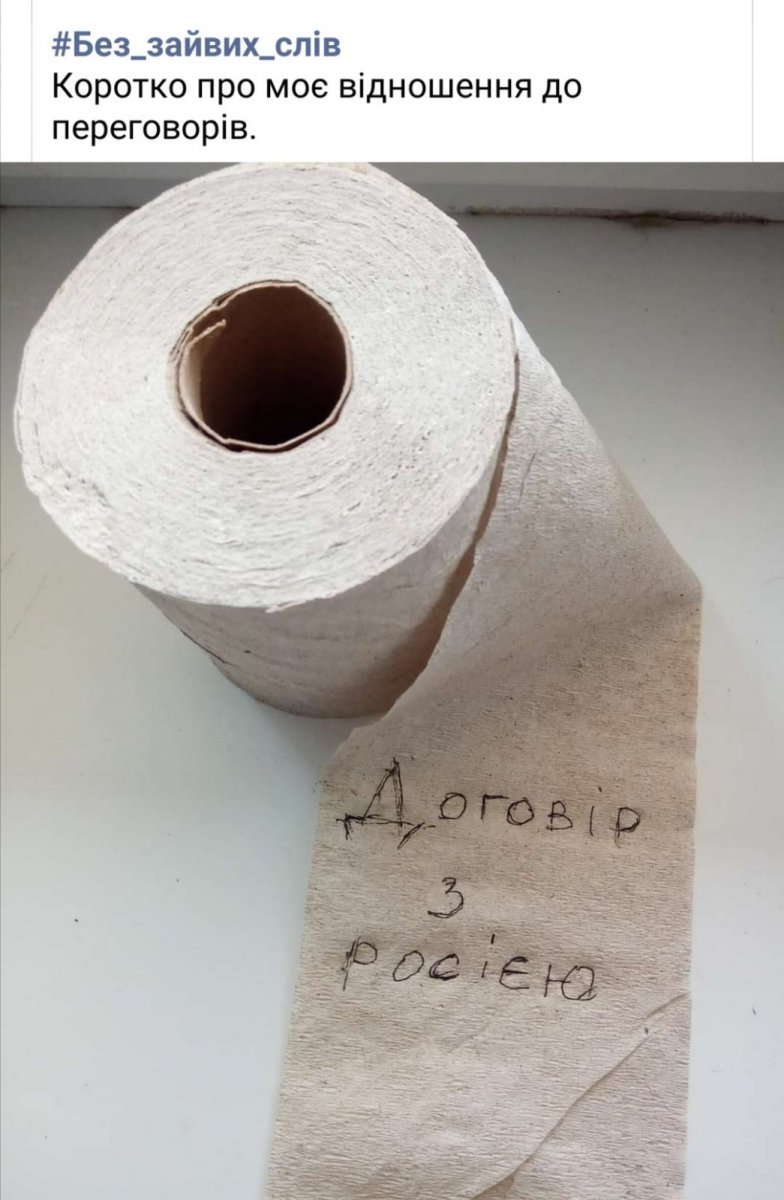 #Без_зайвих_слів
Коротко про моє відношення до
переговорів.
Договір
з
росією